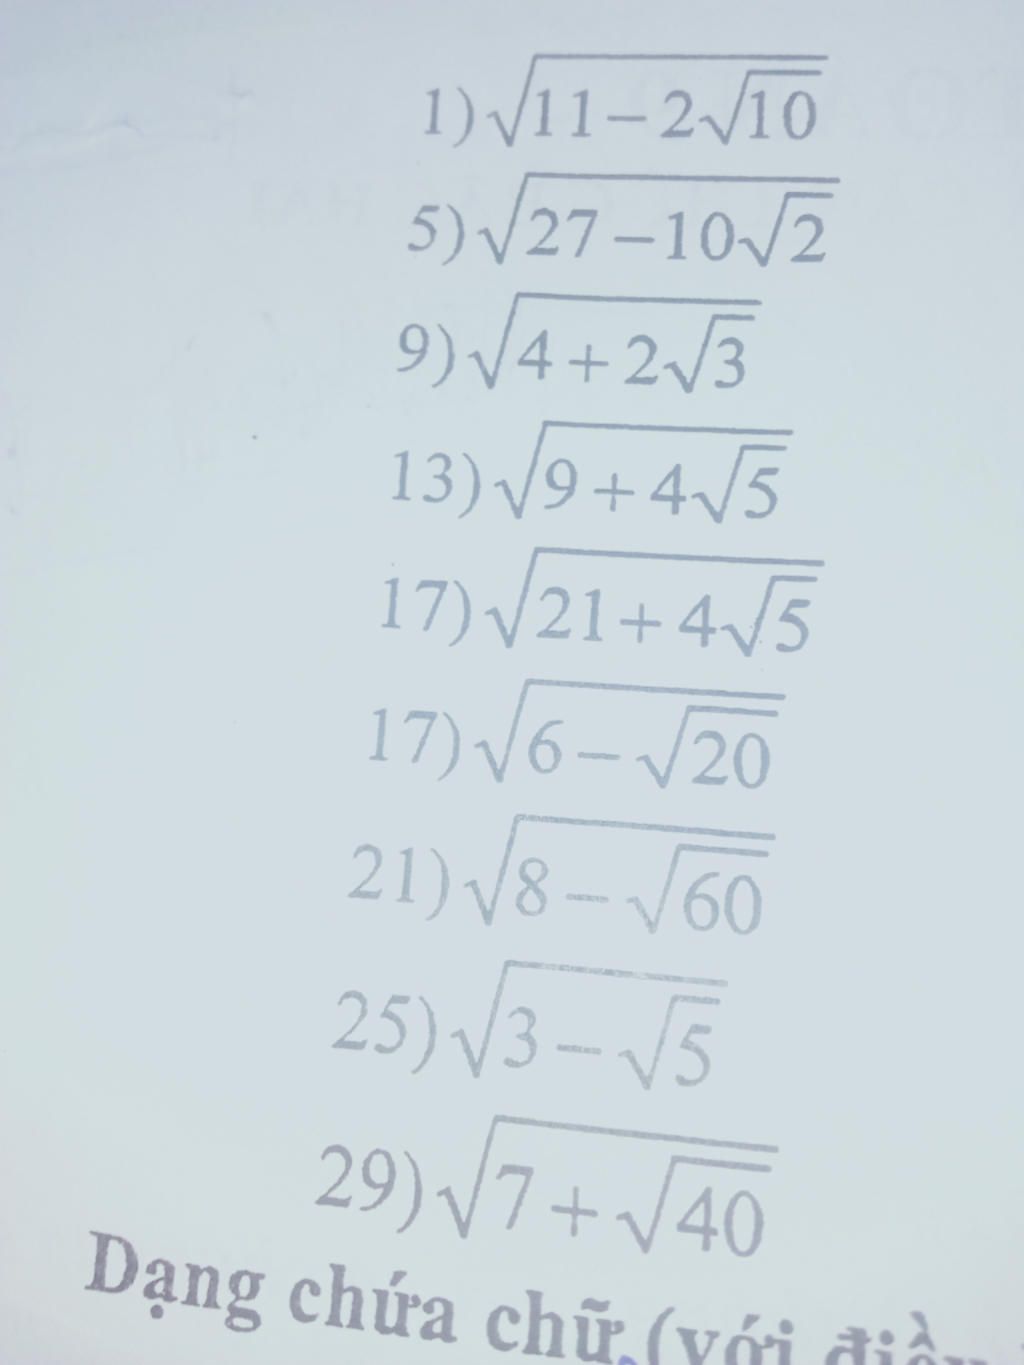 1) √(11 – 2√10)
5) √(27 – 10√2)
9) √(4 + 2√3)
13) √(9 + 4√5)
17) √(21 + 4√5)
17) √(6 – √20)
21) √(8 – √60)
25) √(3 – √5)
29) √(7 + √40)
Dạng chứa chữ (với